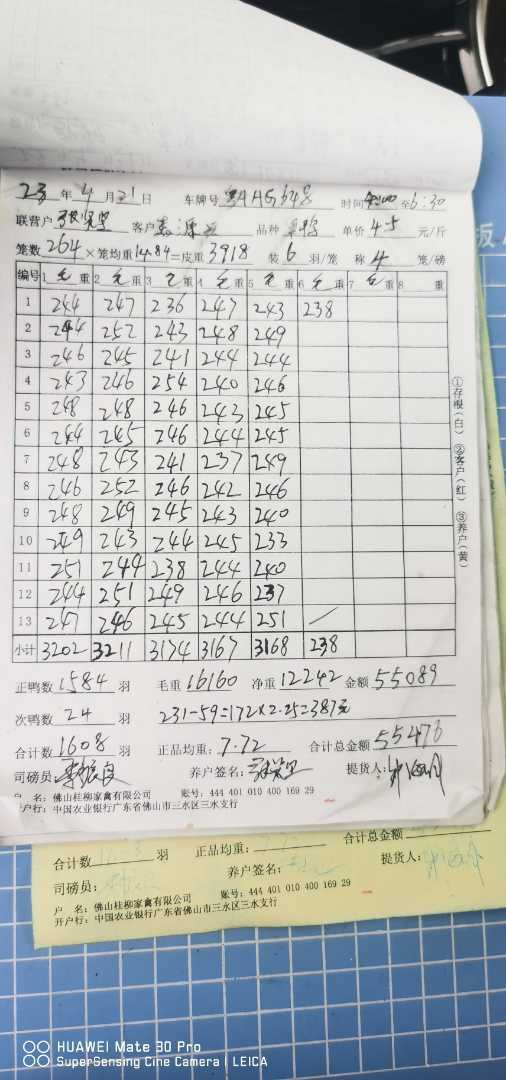 23 年 4 月 21 日 车牌号 粤AHG648 时间 至6:30
联营户 客户 品种 单价 4.5 元/斤
笼数 264 ×笼均重 14.84 =皮重 3918 装 6 羽/笼 称 4 笼/磅
编号 1 毛 重 2 毛 重 3 毛 重 4 毛 重 5 毛 重 6 毛 重 7 毛 重 8 重
1 244 247 236 247 243 238
2 244 252 243 248 249
3 246 245 241 244 244
4 243 246 254 240 246
5 248 248 246 243 245
6 244 245 246 244 245
7 248 243 241 237 249
8 246 252 246 242 246
9 248 249 245 243 240
10 249 243 244 245 233
11 251 244 238 244 240
12 244 251 249 246 237
13 247 246 245 244 251 /
小计 3202 3211 3174 3167 3168 238
①存根(白) ②客户(红) ③养户(黄)
正鸭数 1584 羽 毛重 16160 净重 12242 金额 55089
次鸭数 24 羽 231-59=172×2.25=387元
合计数 1608 羽 正品均重: 7.72 合计总金额 55476
司磅员: 养户签名: 提货人:
户 名: 佛山桂柳家禽有限公司 账号: 444 401 010 400 169 29
户行: 中国农业银行广东省佛山市三水区三水支行
合计数 羽 正品均重: 7.72 合计总金额
司磅员: 养户签名: 提货人:
户 名: 佛山桂柳家禽有限公司 账号: 444 401 010 400 169 29
开户行: 中国农业银行广东省佛山市三水区三水支行
HUAWEI Mate 30 Pro
SuperSensing Cine Camera | LEICA